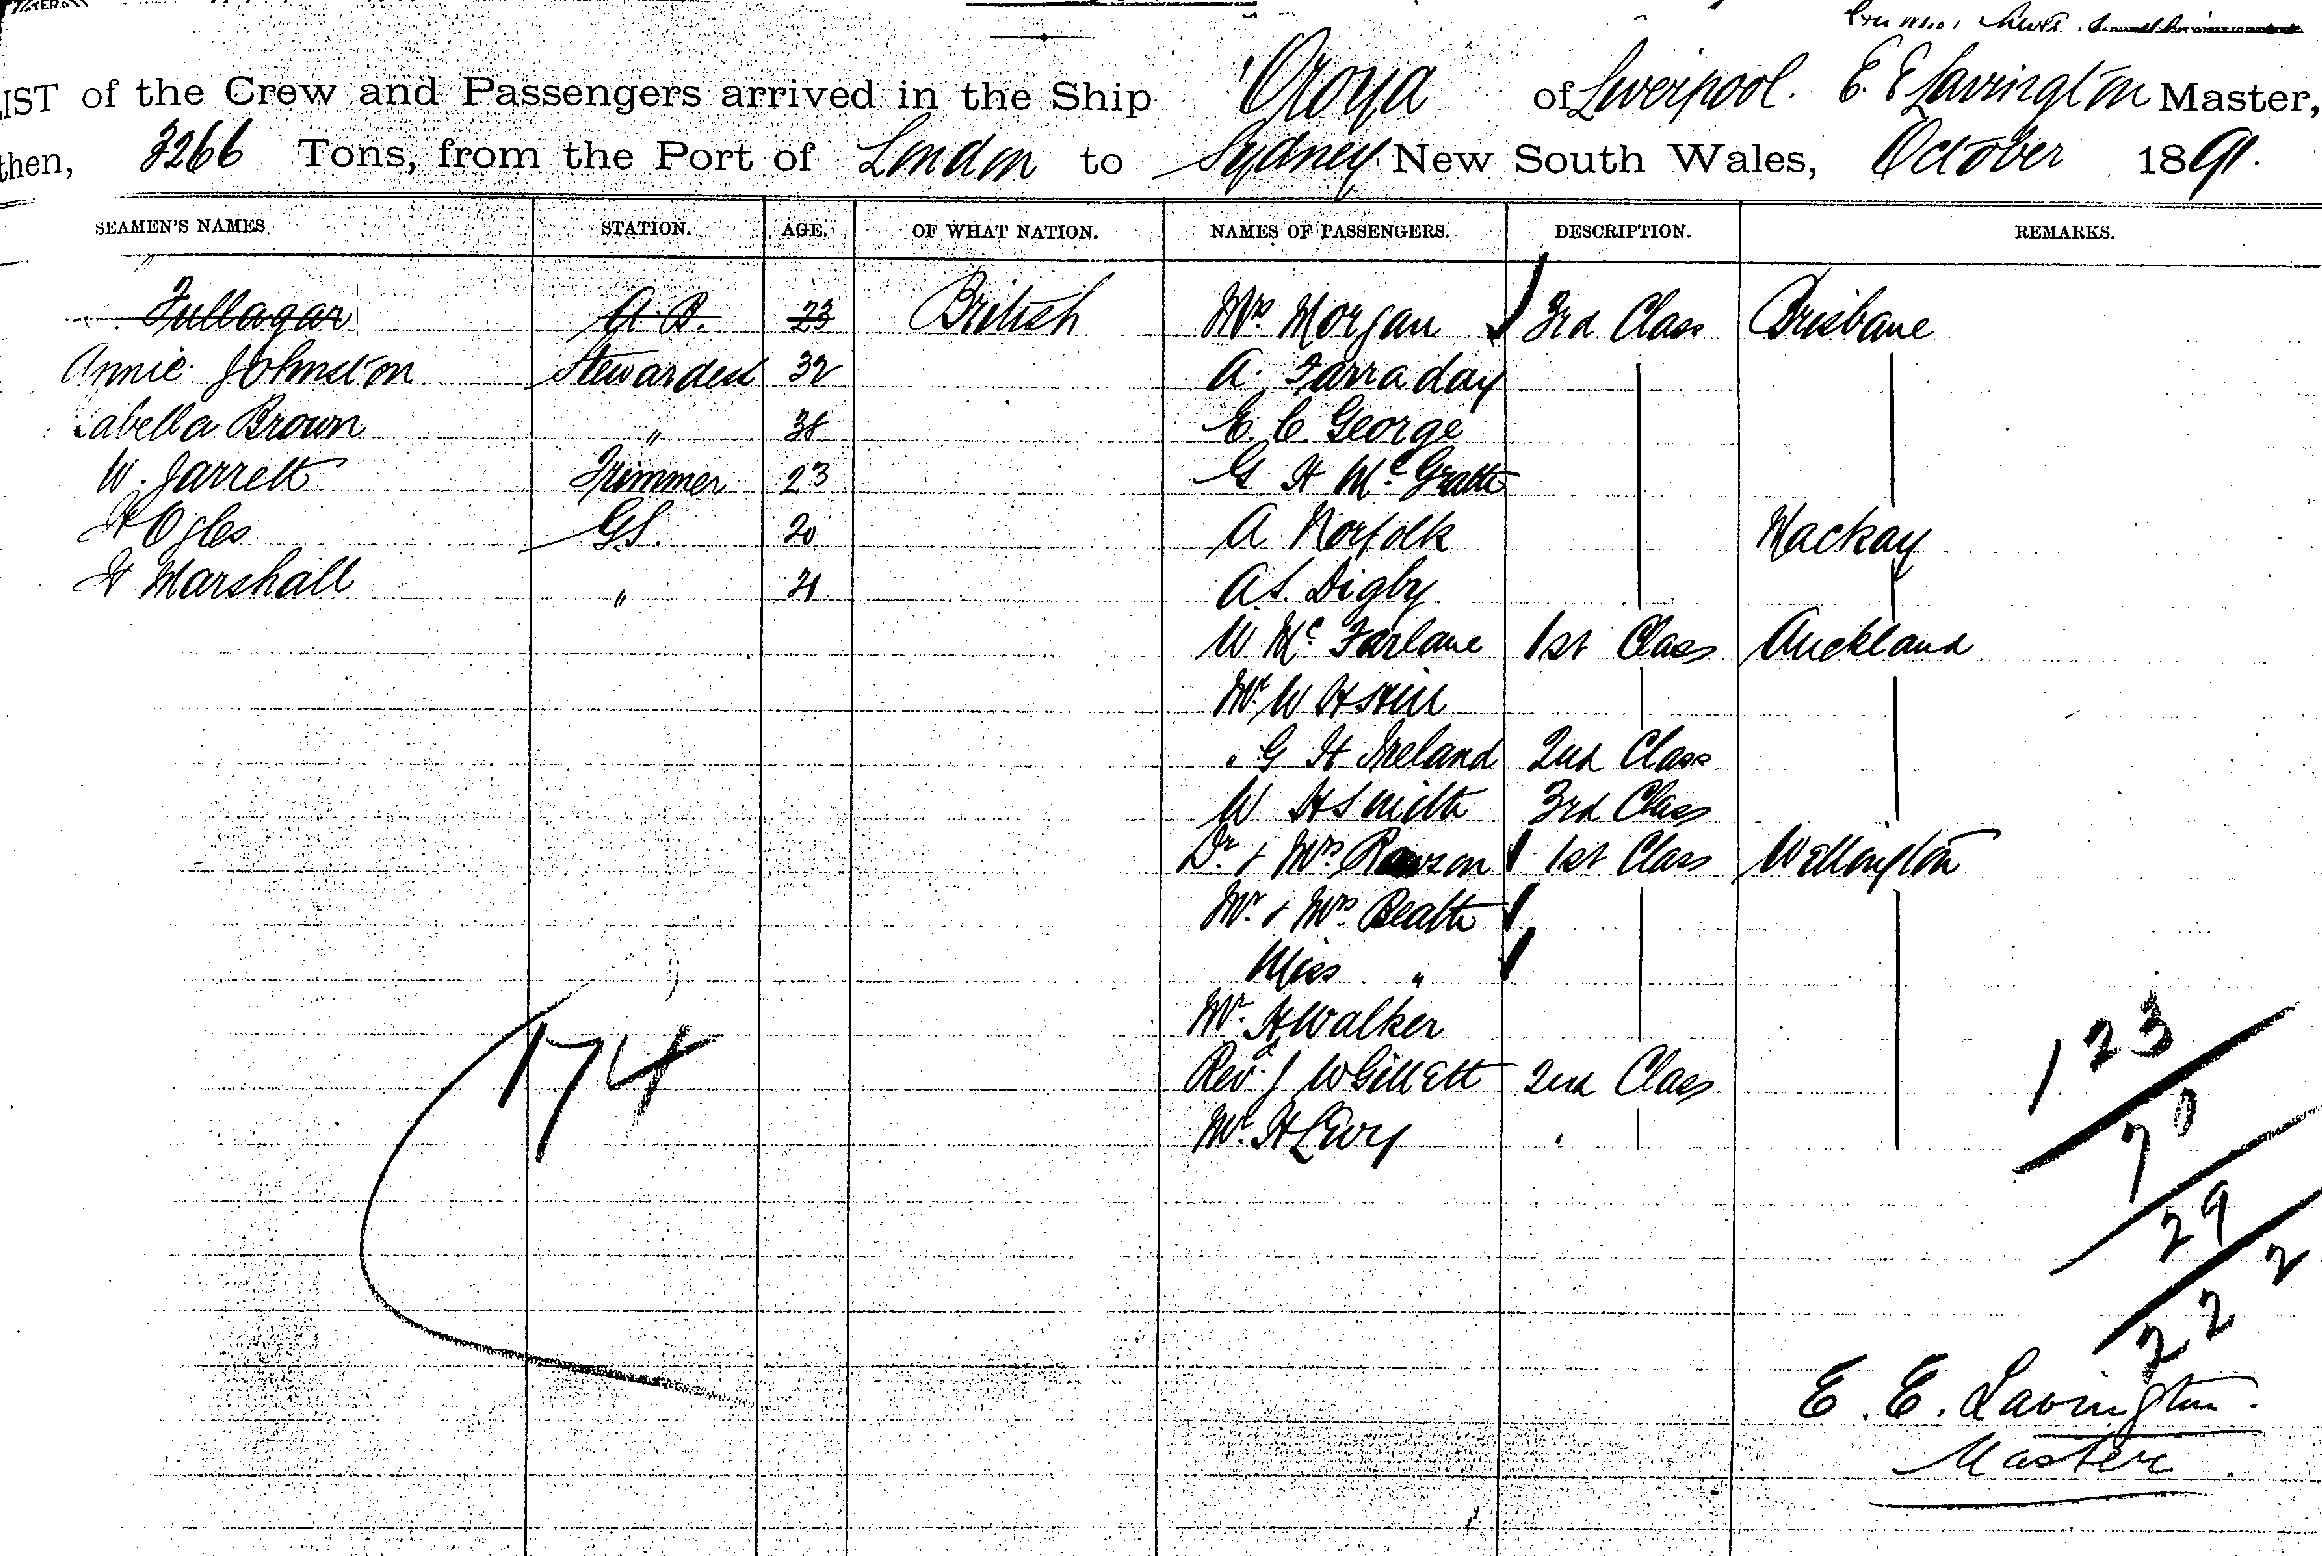 LIST of the Crew and Passengers arrived in the Ship "Oroya of Liverpool. E. E Lavington Master,
then, 3266 Tons, from the Port of London to Sydney New South Wales, October 1891.
SEAMEN'S NAMES. STATION. AGE. OF WHAT NATION. NAMES OF PASSENGERS. DESCRIPTION. REMARKS.
Fullagar A B. 23 British Mrs Morgan 3rd Class Brisbane
Annie Johnston Stewardess 32 A. Farraday
abella Brown " 38 E. C George
W. Jarrett Trimmer 23 G H McGrath
H Ogles G.S. 20 A Norfolk Mackay
H Marshall " 21 A.S. Digby
W McFarlane 1st Class Auckland
Mr W H Hill
" G H Ireland 2nd Class
W H Smith 3rd Class
Dr & Mrs Rawson 1st Class Wellington
Mr & Mrs Beath
Miss "
Mr. H Walker
174
123
Revd J W Gillett 2nd Class
70
Mr. H Levy "
29
222
E. E. Lavington.
Master